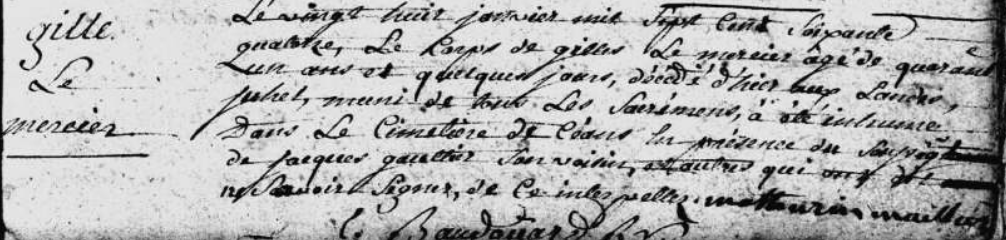 gille.
Le
mercier
Le vingt huit janvier mil sept cent soixante
quatorze, Le Corps de gilles Le mercier agé de quarante
un ans et quelques jours, décédé d'hier aux Landes,
juhel, muni de tous Les Sacremens, a été inhumé
Dans Le Cimetière de Céans En présence du
de jacques gaultier Son voisin, et autres qui ont dit
ne Savoir Signer, de Ce interpellés